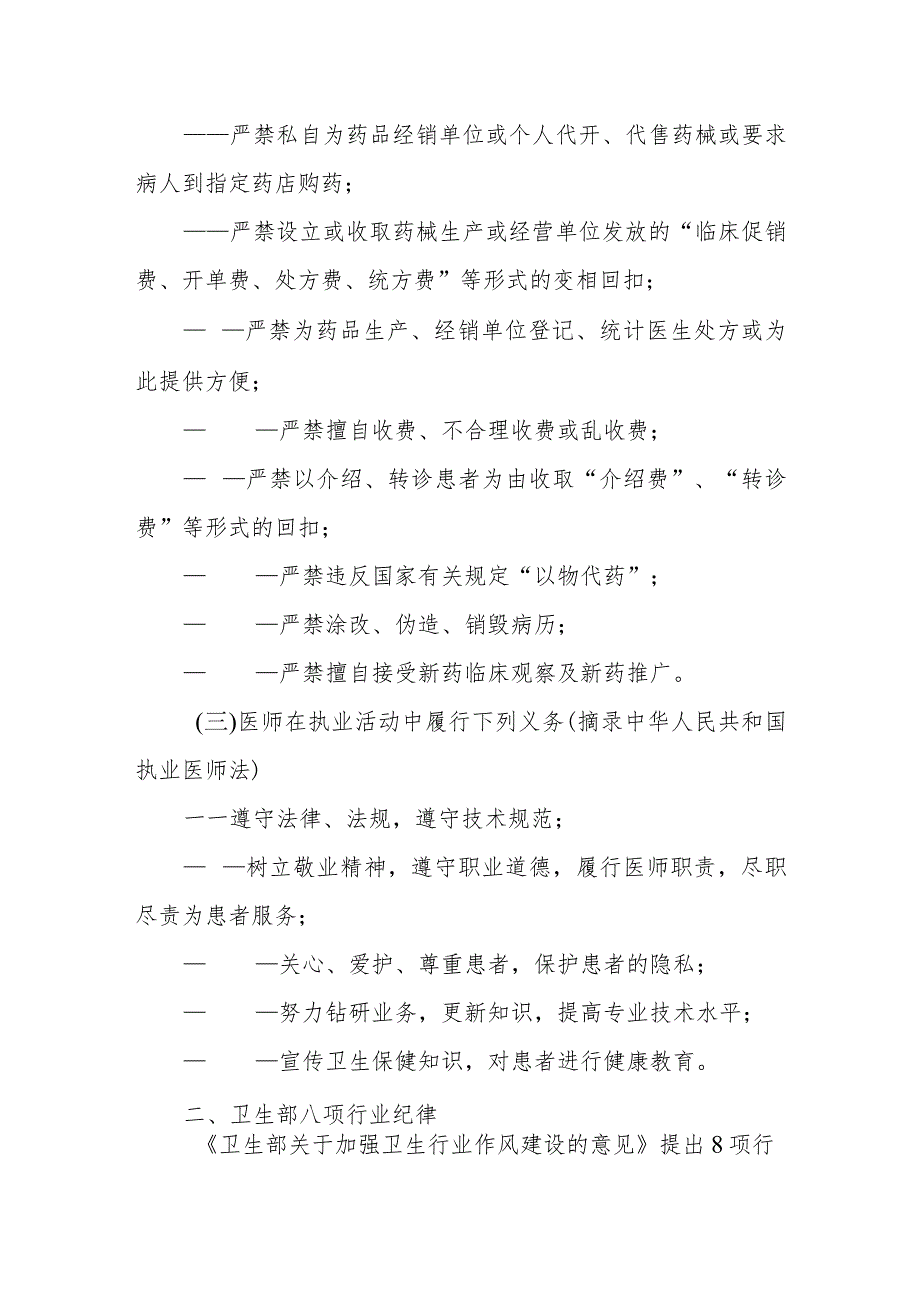 ——严禁私自为药品经销单位或个人代开、代售药械或要求
病人到指定药店购药；
——严禁设立或收取药械生产或经营单位发放的“临床促销
费、开单费、处方费、统方费”等形式的变相回扣；
— —严禁为药品生产、经销单位登记、统计医生处方或为
此提供方便；
— —严禁擅自收费、不合理收费或乱收费；
— —严禁以介绍、转诊患者为由收取“介绍费”、“转诊
费”等形式的回扣；
— —严禁违反国家有关规定“以物代药”；
— —严禁涂改、伪造、销毁病历；
— —严禁擅自接受新药临床观察及新药推广。
(三)医师在执业活动中履行下列义务(摘录中华人民共和国
执业医师法)
一一遵守法律、法规，遵守技术规范；
— —树立敬业精神，遵守职业道德，履行医师职责，尽职
尽责为患者服务；
— —关心、爱护、尊重患者，保护患者的隐私；
— —努力钻研业务，更新知识，提高专业技术水平；
— —宣传卫生保健知识，对患者进行健康教育。
二、卫生部八项行业纪律
《卫生部关于加强卫生行业作风建设的意见》提出 8 项行